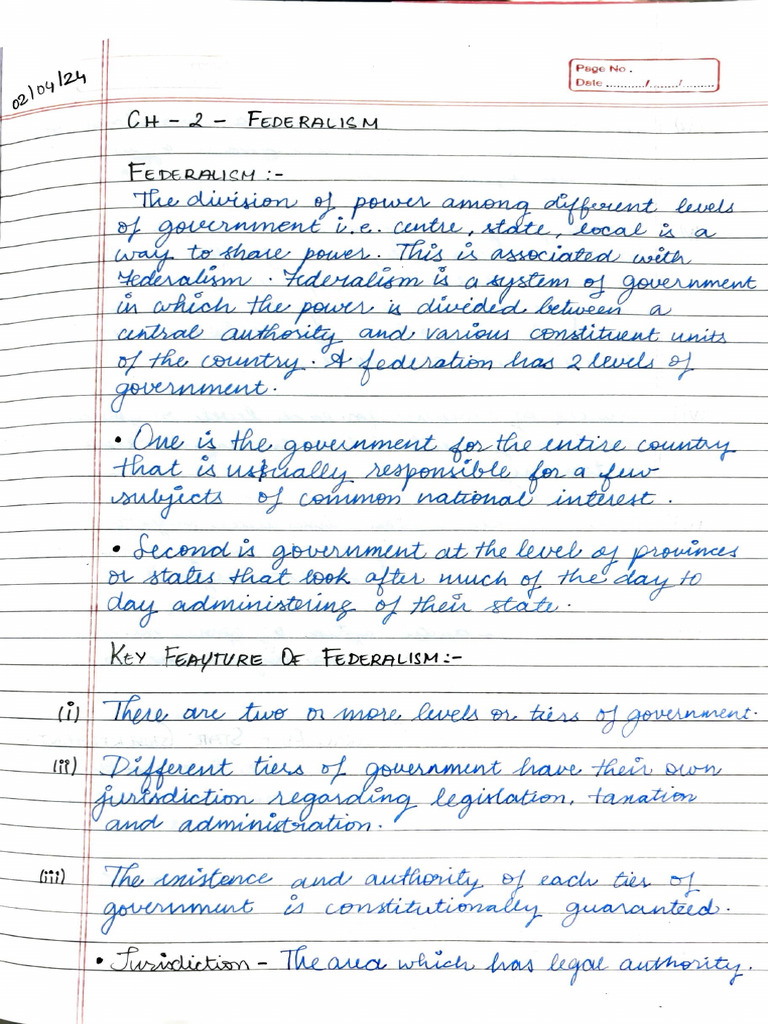 02/04/24
Page No.
Date ......../......../........
CH - 2 - FEDERALISM
FEDERALISM :-
The division of power among different levels
of government i.e. centre, state, local is a
way to share power. This is associated with
Federalism. Federalism is a system of government
in which the power is divided between a
central authority and various constituent units
of the country. A federation has 2 levels of
government.
• One is the government for the entire country
that is usually responsible for a few
subjects of common national interest.
• Second is government at the level of provinces
or states that look after much of the day to
day administering of their state.
KEY FEAYTURE OF FEDERALISM:-
(i) There are two or more levels or tiers of government.
(ii) Different tiers of government have their own
jurisdiction regarding legislation, taxation
and administration.
(iii) The existence and authority of each tier of
government is constitutionally guaranteed.
• Jurisdiction - The area which has legal authority.